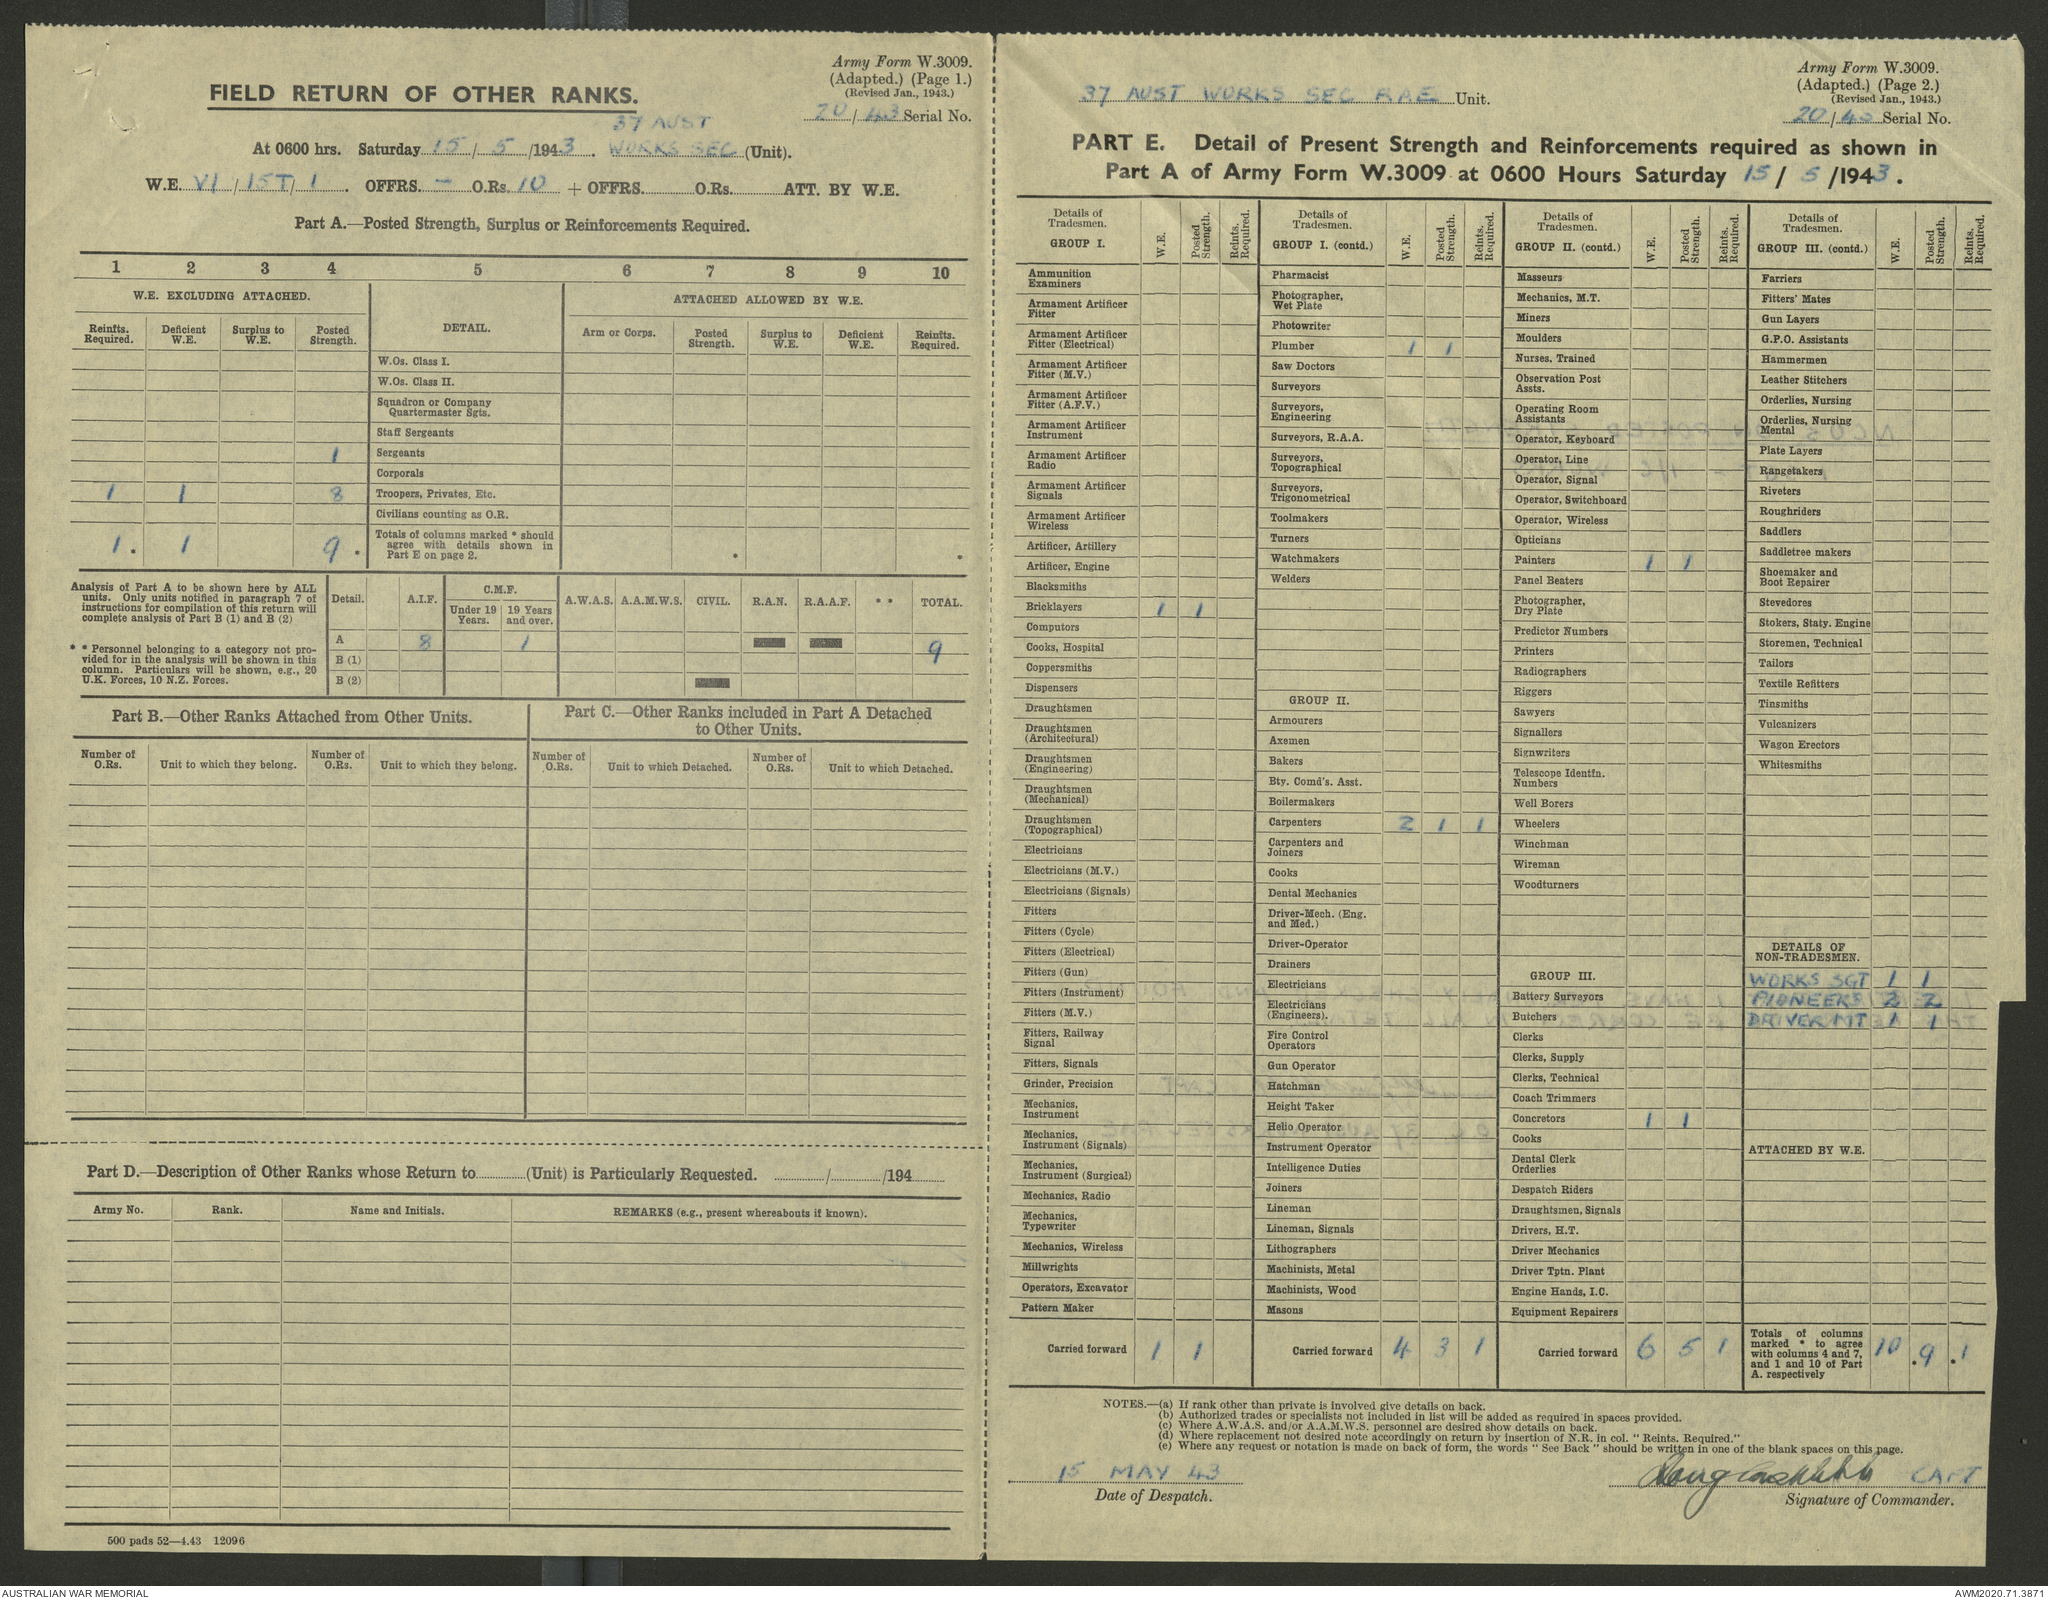 Army Form W.3009.
(Adapted.) (Page 1.)
(Revised Jan., 1943.)
20/43 Serial No.
FIELD RETURN OF OTHER RANKS.
37 AUST
At 0600 hrs. Saturday 15/5/1943. WORKS SEC (Unit).
W.E. VI/15T/1. OFFRS. - O.Rs. 10 + OFFRS. O.Rs. ATT. BY W.E.
Part A.—Posted Strength, Surplus or Reinforcements Required.
1 2 3 4 5 6 7 8 9 10
W.E. EXCLUDING ATTACHED. DETAIL. ATTACHED ALLOWED BY W.E.
Reinfts. Required. Deficient W.E. Surplus to W.E. Posted Strength. Arm or Corps. Posted Strength. Surplus to W.E. Deficient W.E. Reinfts. Required.
W.Os. Class I.
W.Os. Class II.
Squadron or Company
Quartermaster Sgts.
Staff Sergeants
1 Sergeants
Corporals
1 1 8 Troopers, Privates, Etc.
Civilians counting as O.R.
1. 1 9. Totals of columns marked * should
agree with details shown in
Part E on page 2. * *
Analysis of Part A to be shown here by ALL
units. Only units notified in paragraph 7 of
instructions for compilation of this return will
complete analysis of Part B (1) and B (2)
* * Personnel belonging to a category not pro-
vided for in the analysis will be shown in this
column. Particulars will be shown, e.g., 20
U.K. Forces, 10 N.Z. Forces.
Detail. A.I.F. C.M.F. Under 19 Years. 19 Years and over. A.W.A.S. A.A.M.W.S. CIVIL. R.A.N. R.A.A.F. * * TOTAL.
A 8 1 9
B (1)
B (2)
Part B.—Other Ranks Attached from Other Units.
Number of O.Rs. Unit to which they belong. Number of O.Rs. Unit to which they belong.
Part C.—Other Ranks included in Part A Detached
to Other Units.
Number of O.Rs. Unit to which Detached. Number of O.Rs. Unit to which Detached.
Part D.—Description of Other Ranks whose Return to (Unit) is Particularly Requested. / /194
Army No. Rank. Name and Initials. REMARKS (e.g., present whereabouts if known).
500 pads 52—4.43 12096
Army Form W.3009.
(Adapted.) (Page 2.)
(Revised Jan., 1943.)
20/43 Serial No.
37 AUST WORKS SEC RAE Unit.
PART E. Detail of Present Strength and Reinforcements required as shown in
Part A of Army Form W.3009 at 0600 Hours Saturday 15/5/1943.
Details of Tradesmen. GROUP I. W.E. Posted Strength. Reints. Required.
Ammunition Examiners
Armament Artificer Fitter
Armament Artificer Fitter (Electrical)
Armament Artificer Fitter (M.V.)
Armament Artificer Fitter (A.F.V.)
Armament Artificer Instrument
Armament Artificer Radio
Armament Artificer Signals
Armament Artificer Wireless
Artificer, Artillery
Artificer, Engine
Blacksmiths
Bricklayers 1 1
Computors
Cooks, Hospital
Coppersmiths
Dispensers
Draughtsmen
Draughtsmen (Architectural)
Draughtsmen (Engineering)
Draughtsmen (Mechanical)
Draughtsmen (Topographical)
Electricians
Electricians (M.V.)
Electricians (Signals)
Fitters
Fitters (Cycle)
Fitters (Electrical)
Fitters (Gun)
Fitters (Instrument)
Fitters (M.V.)
Fitters, Railway Signal
Fitters, Signals
Grinder, Precision
Mechanics, Instrument
Mechanics, Instrument (Signals)
Mechanics, Instrument (Surgical)
Mechanics, Radio
Mechanics, Typewriter
Mechanics, Wireless
Millwrights
Operators, Excavator
Pattern Maker
Carried forward 1 1
Details of Tradesmen. GROUP I. (contd.) W.E. Posted Strength. Reints. Required.
Pharmacist
Photographer, Wet Plate
Photowriter
Plumber 1 1
Saw Doctors
Surveyors
Surveyors, Engineering
Surveyors, R.A.A.
Surveyors, Topographical
Surveyors, Trigonometrical
Toolmakers
Turners
Watchmakers
Welders
GROUP II.
Armourers
Axemen
Bakers
Bty. Comd's. Asst.
Boilermakers
Carpenters 2 1 1
Carpenters and Joiners
Cooks
Dental Mechanics
Driver-Mech. (Eng. and Med.)
Driver-Operator
Drainers
Electricians
Electricians (Engineers).
Fire Control Operators
Gun Operator
Hatchman
Height Taker
Helio Operator
Instrument Operator
Intelligence Duties
Joiners
Lineman
Lineman, Signals
Lithographers
Machinists, Metal
Machinists, Wood
Masons
Carried forward 4 3 1
Details of Tradesmen. GROUP II. (contd.) W.E. Posted Strength. Reints. Required.
Masseurs
Mechanics, M.T.
Miners
Moulders
Nurses, Trained
Observation Post Assts.
Operating Room Assistants
Operator, Keyboard
Operator, Line
Operator, Signal
Operator, Switchboard
Operator, Wireless
Opticians
Painters 1 1
Panel Beaters
Photographer, Dry Plate
Predictor Numbers
Printers
Radiographers
Riggers
Sawyers
Signallers
Signwriters
Telescope Identfn. Numbers
Well Borers
Wheelers
Winchman
Wireman
Woodturners
GROUP III.
Battery Surveyors
Butchers
Clerks
Clerks, Supply
Clerks, Technical
Coach Trimmers
Concretors 1 1
Cooks
Dental Clerk Orderlies
Despatch Riders
Draughtsmen, Signals
Drivers, H.T.
Driver Mechanics
Driver Tptn. Plant
Engine Hands, I.C.
Equipment Repairers
Carried forward 6 5 1
Details of Tradesmen. GROUP III. (contd.) W.E. Posted Strength. Reints. Required.
Farriers
Fitters' Mates
Gun Layers
G.P.O. Assistants
Hammermen
Leather Stitchers
Orderlies, Nursing
Orderlies, Nursing Mental
Plate Layers
Rangetakers
Riveters
Roughriders
Saddlers
Saddletree makers
Shoemaker and Boot Repairer
Stevedores
Stokers, Staty. Engine
Storemen, Technical
Tailors
Textile Refitters
Tinsmiths
Vulcanizers
Wagon Erectors
Whitesmiths
DETAILS OF NON-TRADESMEN.
WORKS SGT 1 1
PIONEERS 2 2
DRIVER MT 1 1
ATTACHED BY W.E.
Totals of columns
marked * to agree
with columns 4 and 7,
and 1 and 10 of Part
A. respectively 10 .9 .1
NOTES.—(a) If rank other than private is involved give details on back.
(b) Authorized trades or specialists not included in list will be added as required in spaces provided.
(c) Where A.W.A.S. and/or A.A.M.W.S. personnel are desired show details on back.
(d) Where replacement not desired note accordingly on return by insertion of N.R. in col. "Reints. Required."
(e) Where any request or notation is made on back of form, the words "See Back" should be written in one of the blank spaces on this page.
15 MAY 43
Date of Despatch.
CAPT
Signature of Commander.
AUSTRALIAN WAR MEMORIAL
AWM2020.71.3871